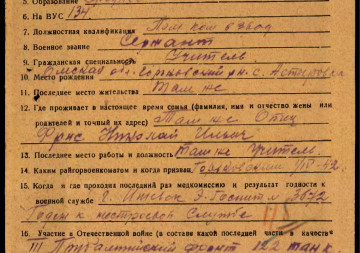 5. Образование
6. На ВУС 134
7. Должностная квалификация Пом ком взвод
8. Военное звание Сержант
9. Гражданская специальность Учитель
10. Место рождения Омская обл. Горьковский р-н с. Астыровка
11. Последнее место жительства Там же
12. Где проживает в настоящее время семья (фамилия, имя и отчество жены или
родителей и точный их адрес) Там же Отец
Николай Ильич
13. Последнее место работы и должность Там же Учитель
14. Каким райгорвоенкоматом и когда призван, Горьковский
15. Когда и где проходил последний раз медкомиссию и результат годности к
военной службе г. Ижевск Э-Госпитл 3672
Годен к нестроевой службе
16. Участие в Отечественной войне (в составе какой последней части и в качестве
III Прибалтийский фронт 122 танк